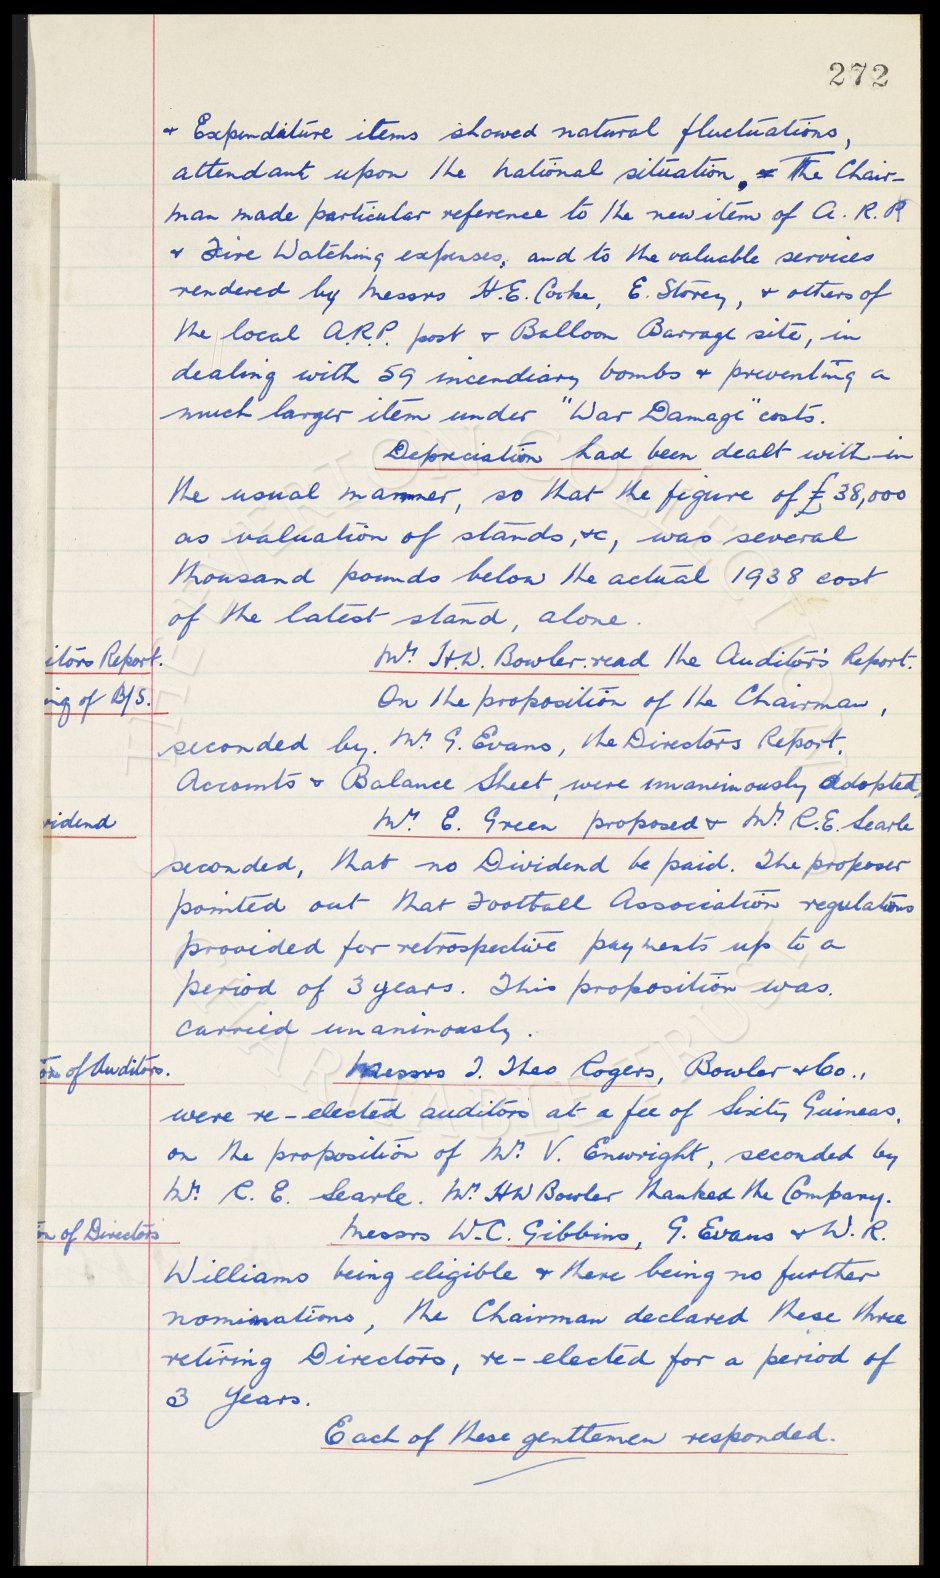 272
& Expenditure items showed natural fluctuations,
attendant upon the national situation. The Chair-
man made particular reference to the new item of A. R. P
& Fire Watching expenses, and to the valuable services
rendered by Messrs H.E. Cooke, E. Storey, & others of
the local A.R.P. post & Balloon Barrage site, in
dealing with 59 incendiary bombs & preventing a
much larger item under "War Damage" costs.
Depreciation had been dealt with in
the usual manner, so that the figure of £38,000
as valuation of stands, &c, was several
thousand pounds below the actual 1938 cost
of the latest stand, alone.
itors Report.
Mr. H.W. Bowler read the Auditor's Report.
ing of B/S.
On the proposition of the Chairman,
seconded by Mr. G. Evans, the Directors Report,
Accounts & Balance Sheet, were unanimously adopted.
vidend
Mr. E. Green proposed & Mr. R.E. Searle
seconded, that no Dividend be paid. The proposer
pointed out that Football Association regulations
provided for retrospective payments up to a
period of 3 years. This proposition was
carried unanimously.
on of Auditors.
Messrs J. Theo Rogers, Bowler & Co.,
were re-elected auditors at a fee of Sixty Guineas,
on the proposition of Mr. V. Enwright, seconded by
Mr. R. E. Searle. Mr. HW Bowler thanked the Company.
on of Directors
Messrs W.C. Gibbins, G. Evans & W. R.
Williams being eligible & there being no further
nominations, the Chairman declared these three
retiring Directors, re-elected for a period of
3 years.
Each of these gentlemen responded.
THE EVERTON COLLECTION
CHARITABLE TRUST